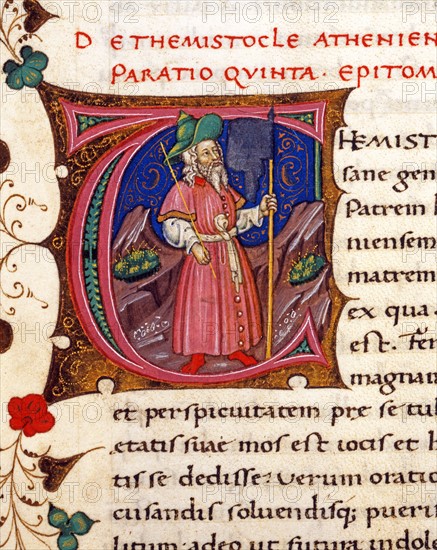 DE THEMISTOCLE ATHENIEN
PARATIO QVINTA. EPITOM
HEMIST
sane gen
Patrem
nuensem
matrem
ex qua
est.
magnam
et perspicuitatem pre se tul
etatis suae mos est iocis et
tis se dedisse. Verum oratio
cusandis soluendisq; pueri
litum. adeo ut futura indole